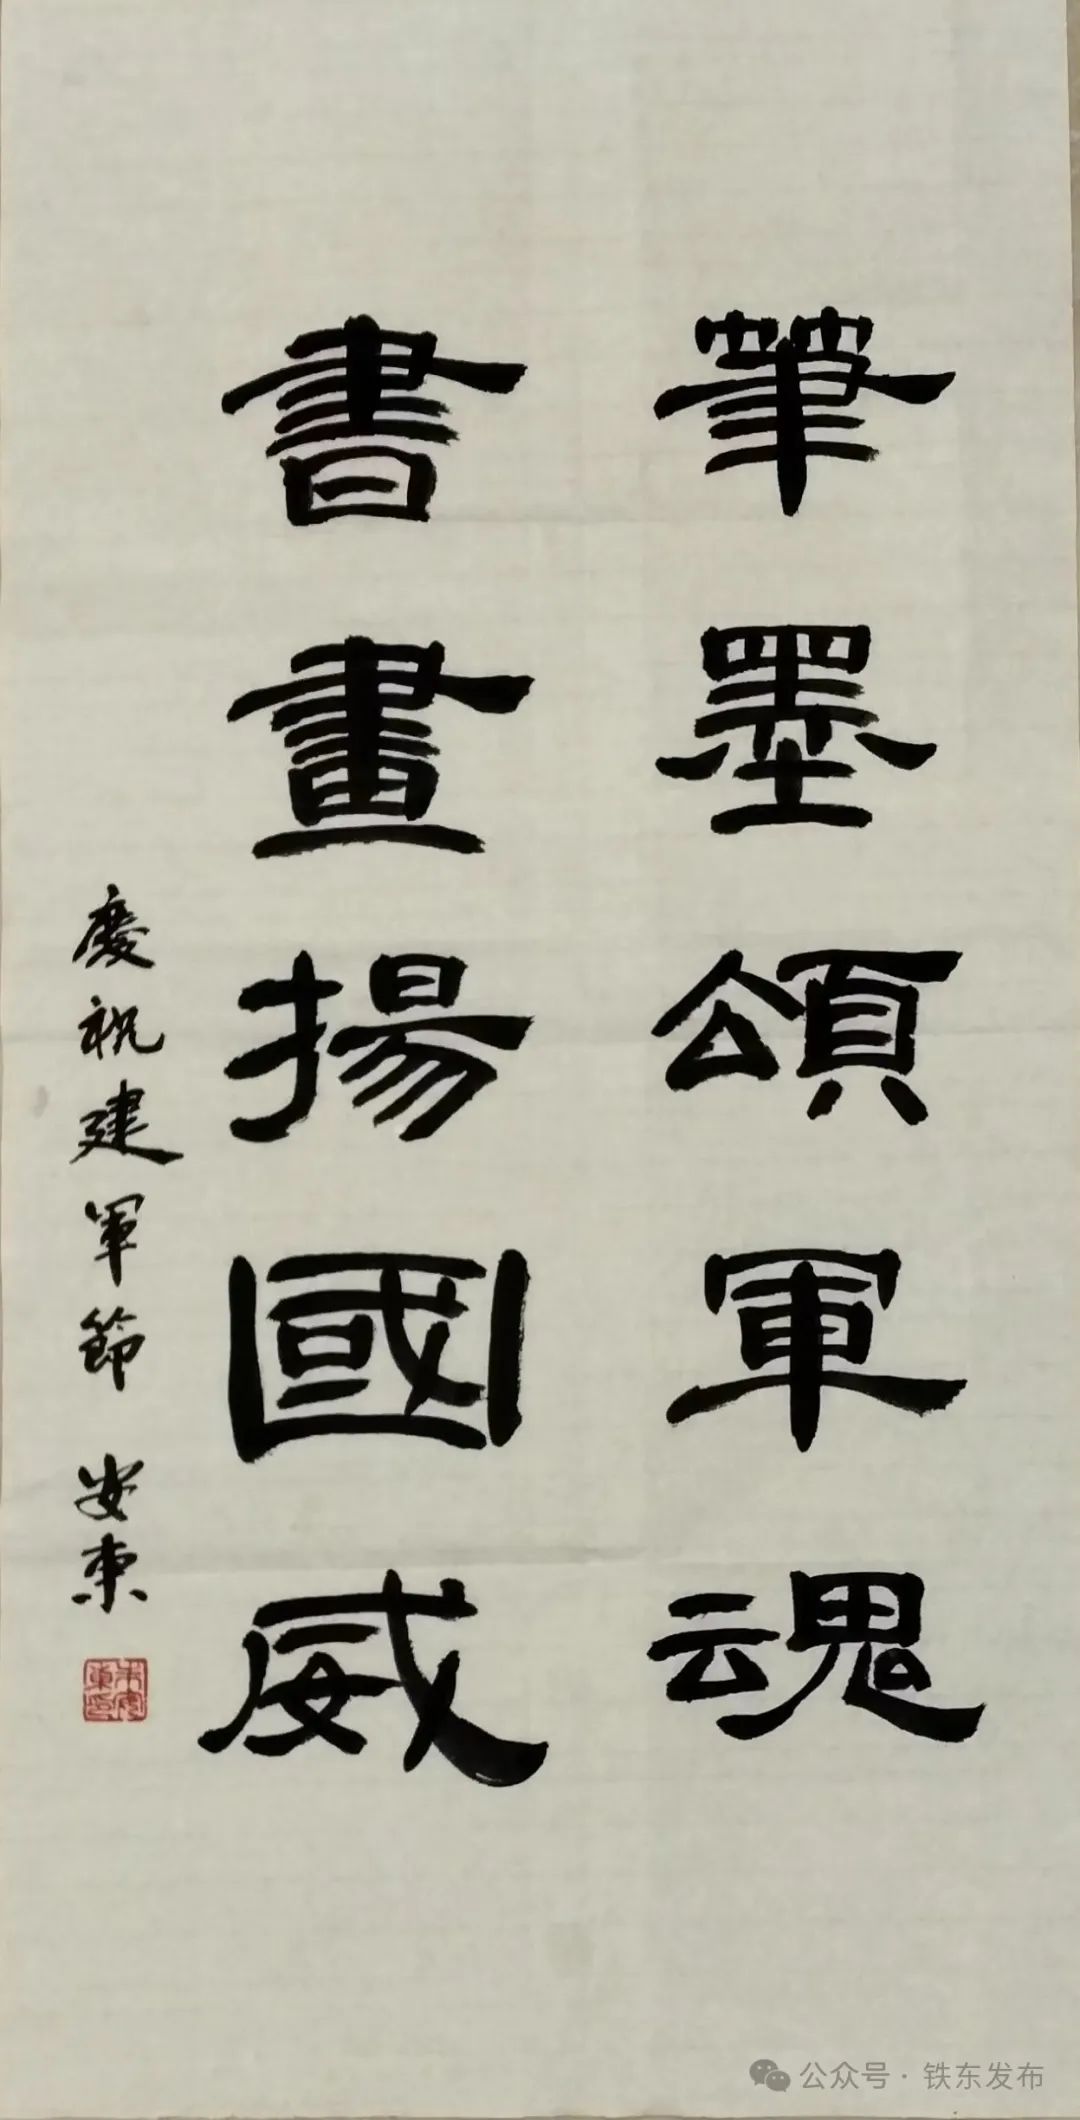 筆墨頌軍魂
書畫揚國威
慶祝建軍節 安東
公众号 · 铁东发布